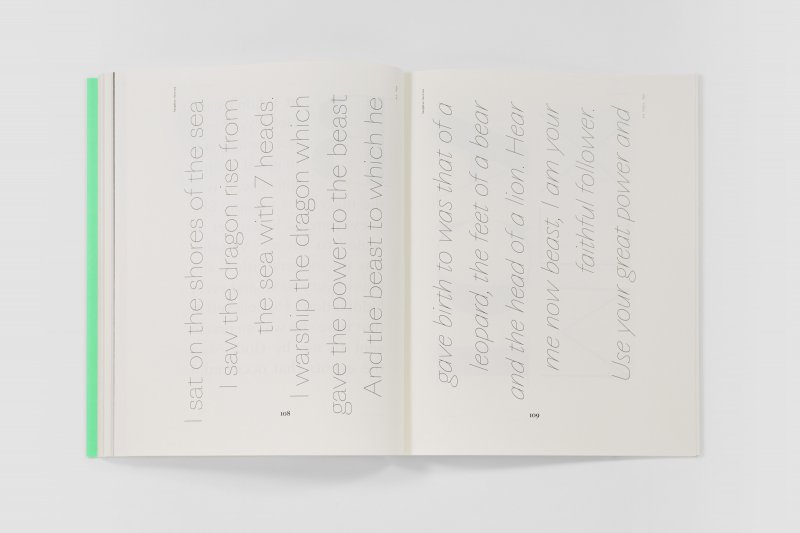 I sat on the shores of the sea
I saw the dragon rise from
the sea with 7 heads.
I warship the dragon which
gave the power to the beast
And the beast to which he
108
gave birth to was that of a
leopard, the feet of a bear
and the head of a lion. Hear
me now beast, I am your
faithful follower.
Use your great power and
109